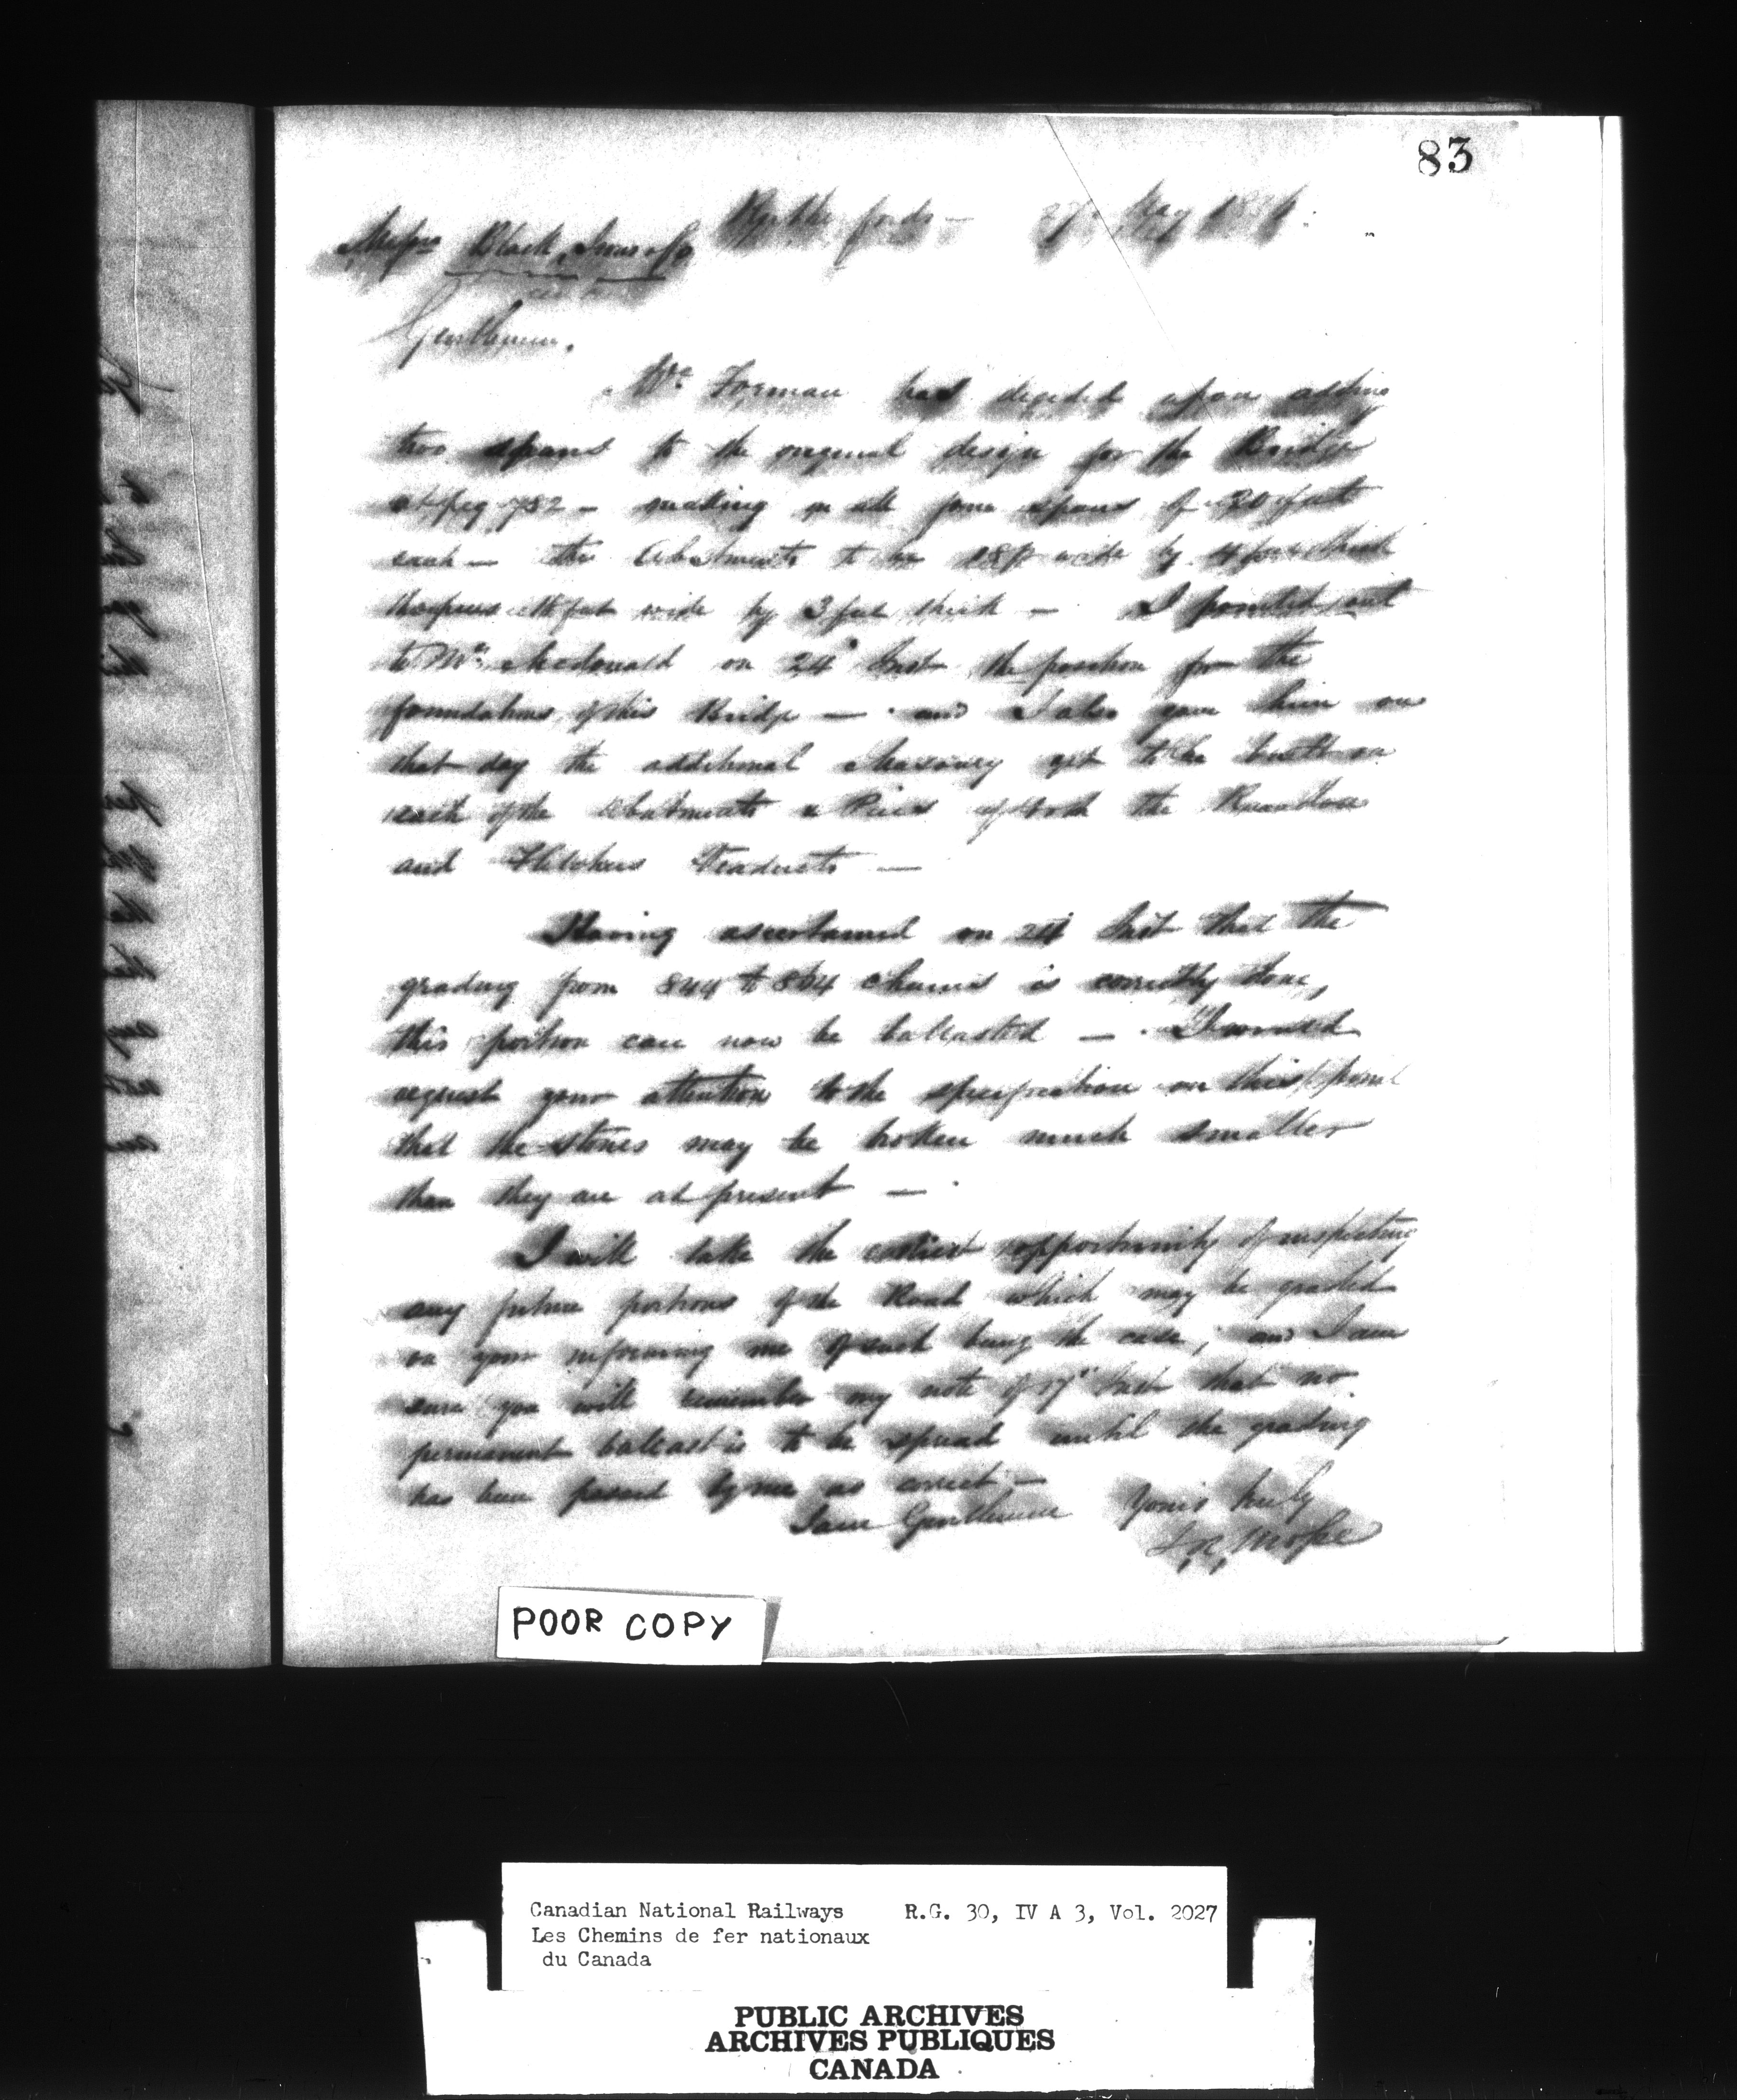 83
27th May 1856.
Messrs Black, Jones & Co
Gentlemen.
Mr Forman has decided upon adding
two spans to the original design for the Bridge
at peg 782 – making in all four spans of 20 feet
each – the Abutments to be 18ft wide by 4 feet thick
the piers feet wide by 3 feet thick – I pointed out
to Mr McDonald on 24th Inst the position for the
foundations of this Bridge – and I also gave him on
that day the additional Masonry yet to be built on
each of the Abutments & Piers of both the
and Fletchers Viaducts –
Having ascertained on 24 Inst that the
grading from 844 to 864 chains is correctly done,
this portion can now be ballasted – I would
request your attention to the specification on this point
that the stones may be broken much smaller
than they are at present –
I will take the earliest opportunity of inspecting
any future portions of the Road which may be graded
on your informing me of such being the case; and I am
sure you will remember my note of 17th Inst that no
permanent ballast is to be spread until the grading
has been passed by me as correct –
I am Gentlemen Yours truly
POOR COPY
Canadian National Railways R.G. 30, IV A 3, Vol. 2027
Les Chemins de fer nationaux
du Canada
PUBLIC ARCHIVES
ARCHIVES PUBLIQUES
CANADA